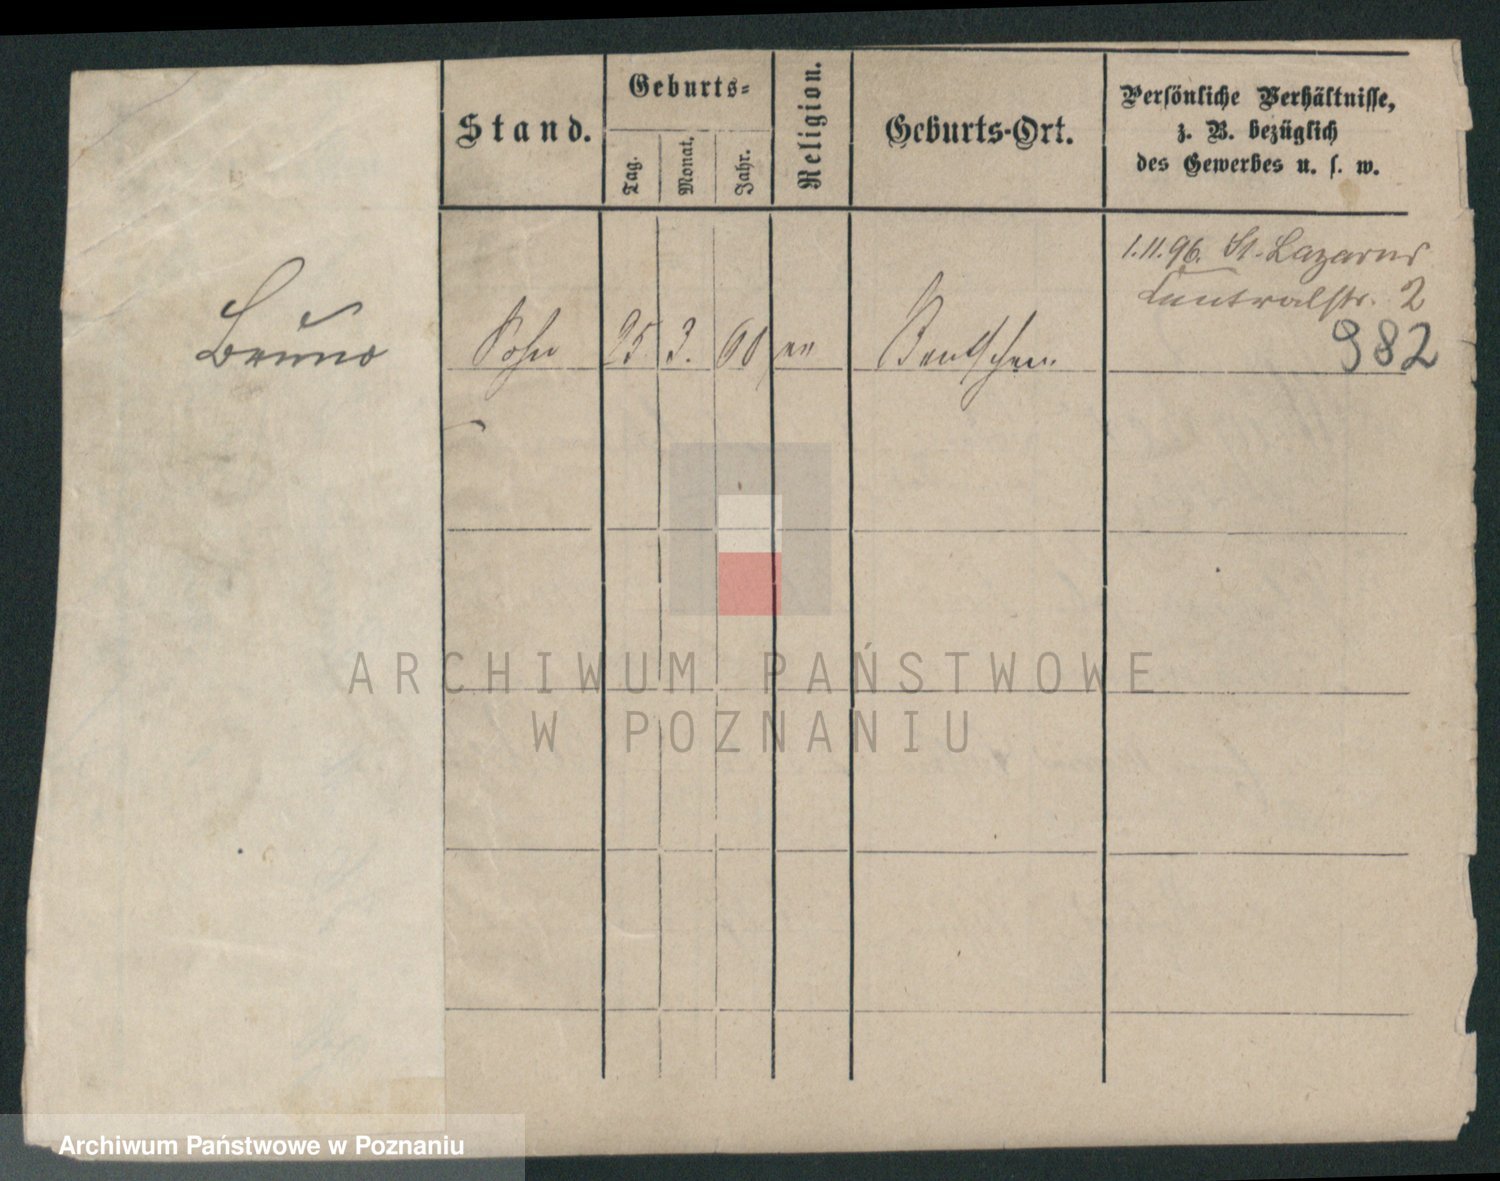 Stand.
Geburts-
Tag.
Monat.
Jahr.
Religion.
Geburts-Ort.
Persönliche Verhältnisse,
z. B. bezüglich
des Gewerbes u. s. w.
1.11.96. St. Lazarus
Centralstr. 2
982
Bruno
Sohn 25. 3. 60 ev Bentschen
ARCHIWUM PAŃSTWOWE
W POZNANIU
Archiwum Państwowe w Poznaniu